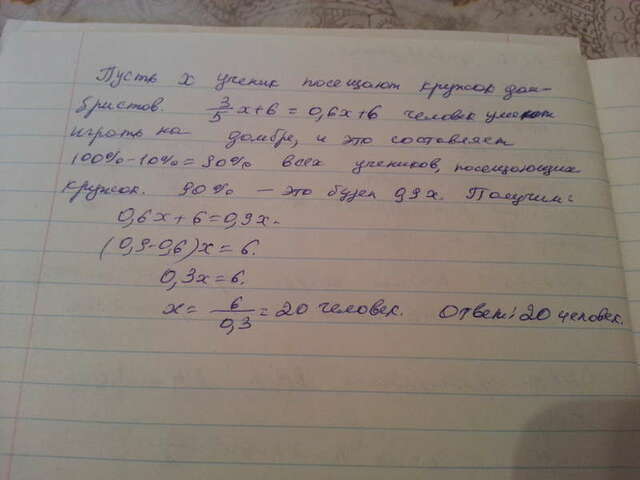 Пусть х ученик посещают кружок дом-
бристов. 3/5 х+6 = 0,6х+6 человек умеют
играть на домбре, и это составляет
100%-10%=90% всех учеников, посещающих
кружок. 90% — это будет 0,9х. Получим:
0,6х+6=0,9х.
(0,9-0,6)х=6.
0,3х=6.
х= 6/0,3 =20 человек. Ответ: 20 человек.